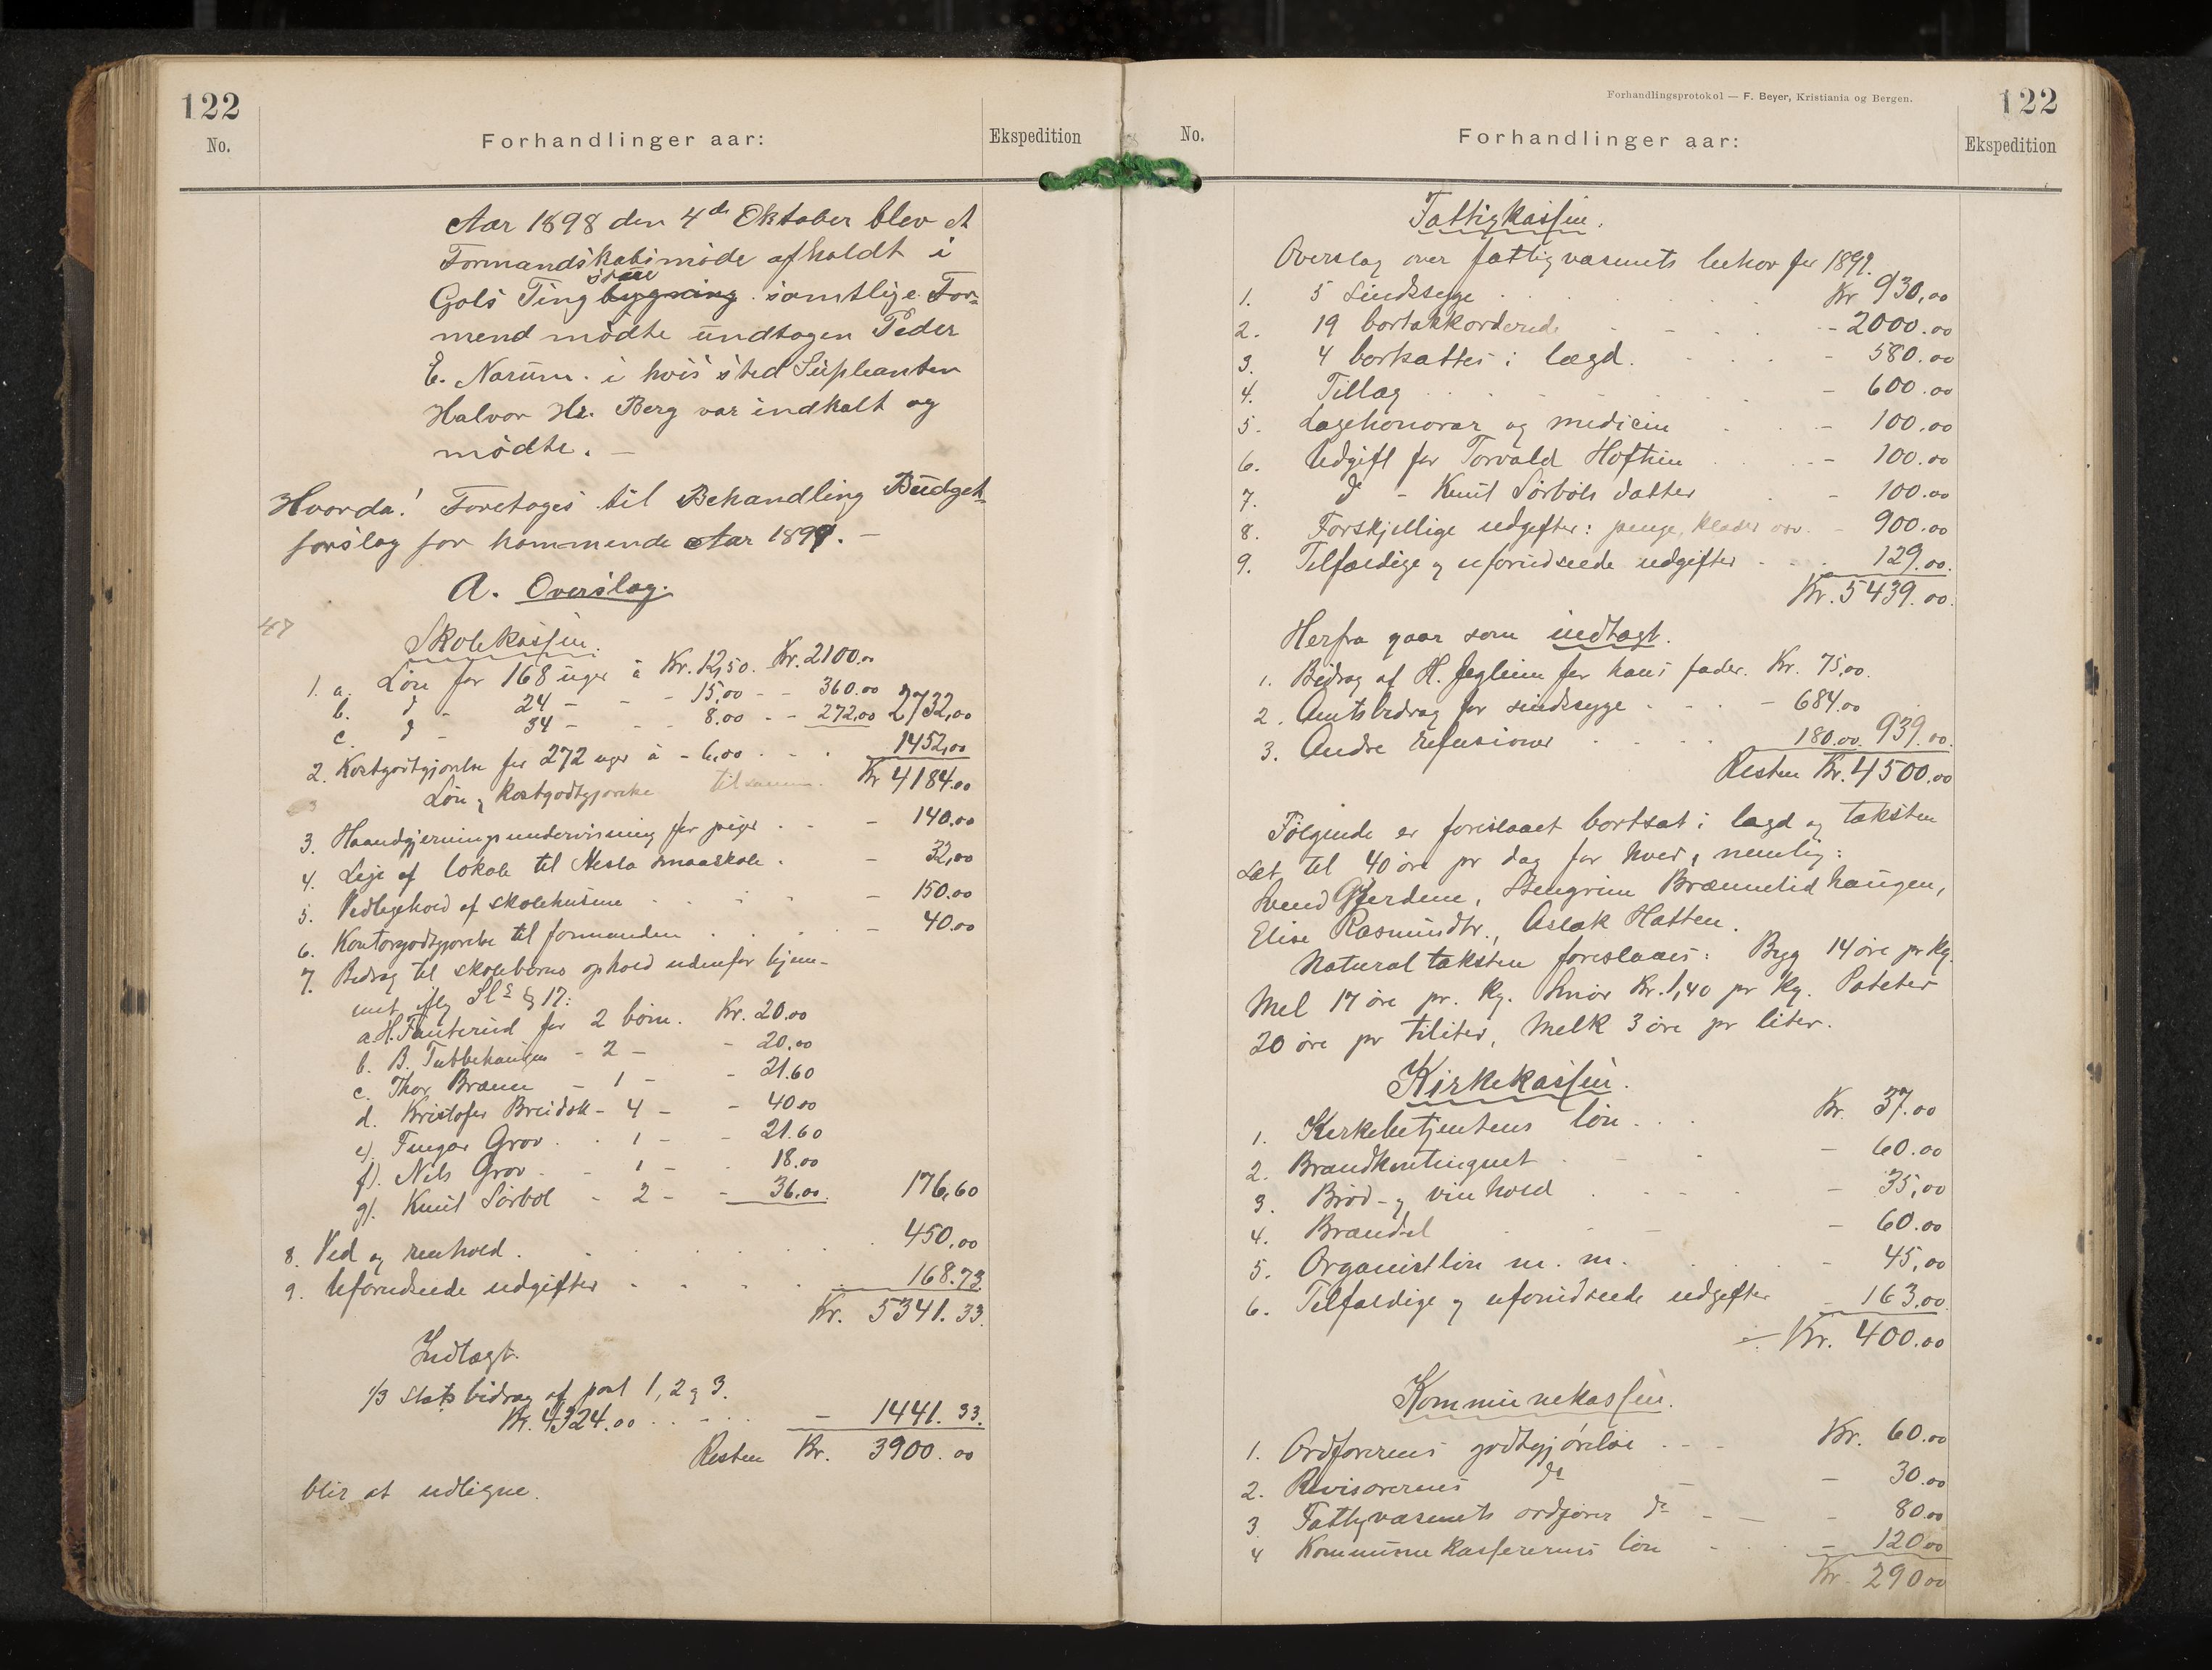 122
No.
Forhandlinger aar:
Ekspedition
Aar 1898 den 4de Oktober blev et
Formandskabsmöde afholdt i
stue
Gols Ting bygning. samtlige For-
mend mödte undtagen Peder
E. Narum. i hvis sted Supleanten
Halvor Hr. Berg var indkalt og
mödte. —
Hvorda! Foretages til Behandling Budget-
forslag for kommende Aar 1899. —
A. Overslag.
47
Skolekassen.
1. a. Lön for 168 uger à Kr. 12,50. Kr. 2100.00
b. do - 24 - - - 15,00 - - 360.00
c. do - 34 - - - 8.00 - - 272,00 2732,00
2. Kostgodtgjörelse for 272 uger à - 6,00 . - . 1452,00
Lön & kostgodtgjörelse tilsammen. Kr 4184.00
3. Haandgjerningsundervisning for piger . - - 140.00
4. Leje af lokale til Nesla smaaskole . - 32,00
5. Vedligehold af skolehusene . . . - 150.00
6. Kontorgodtgjörelse til formanden . . . - 40.00
7. Bidrag til skolebörns ophold udenfor hjem-
met iflg Sls § 17:
a. H. Fauterud for 2 börn. Kr. 20.00
b. B. Tubbehaugen - 2 - - 20,00
c. Thor Brænn - 1 - - 21.60
d. Kristofer Breidok - 4 - - 40.00
e). Fingar Grov . . 1 - - 21.60
f). Nils Grov . - 1 - . 18.00
g). Knut Sörböl - 2 - - 36,00. 176,60
8. Ved og renhold . . . . . . . 450,00
9. Uforudseede udgifter - . . . . 168.73
Kr. 5341.33.
Indtægt.
1/3 Statsbidrag af post 1, 2 & 3.
Kr. 4324.00 . . - . . - 1441.33.
Resten Kr. 3900.00
blir at udligne.
Forhandlingsprotokol — F. Beyer, Kristiania og Bergen.
122
No.
Forhandlinger aar:
Ekspedition
Fattigkassen.
Overslag over fattigvæsenets behov for 1899.
1. 5 Sindssyge . . . . . Kr. 930,00
2. 19 bortakkorderede - - . . - 2000.00
3. 4 bortsattes i lægd. . . . - 580.00
4. Tillæg . . . . . . - 600.00
5. Lægehonorar og medicin . . - 100.00
6. Udgift for Torvald Hoftun . . - 100.00
7. do - Knut Sörböls datter . - 100.00
8. Forskjellige udgifter: penge, klæder osv. - 900.00
9. Tilfældige & uforudseede udgifter - . . 129.00.
Kr. 5439.00.
Herfra gaar som indtægt.
1. Bidrag af H. Jegleim for hans fader. Kr. 75,00.
2. Amtsbidrag for sindssyge . - . - 684.00
3. Andre refusioner . . . . 180.00. 939.00.
Resten Kr. 4500.00
Fölgende er foreslaaet bortsat i lægd og taksten
sat til 40 öre pr dag for hver, nemlig:
Svend Gjerdene, Stengrim Brænnelidhaugen,
Elise Rasmundtr., Aslak Hatten.
Naturaltaksten foreslaaes: Byg 14 öre pr kg.
Mel 17 öre pr. kg. Smör Kr. 1,40 pr kg. Poteter
20 öre pr tiliter, Melk 3 öre pr liter.
Kirkekassen.
1. Kirkebetjentens lön . . . Kr. 37.00
2. Brandkontingent . - . - 60.00
3. Bröd- & vinhold . . - . - 35,00
4. Brændsel . - - - 60.00
5. Organistlön m. m. . . . - 45,00
6. Tilfældige & uforudseede udgifter - 163,00.
Kr. 400.00
Kommunekassen.
1. Ordförerens godtgjörelse . - - Kr. 60.00
2. Revisorernes do - - 30.00
3 Fattigvæsenets ordförer do - — - 80.00
4 Kommunekassererens lön - . - 120.00
Kr. 290.00